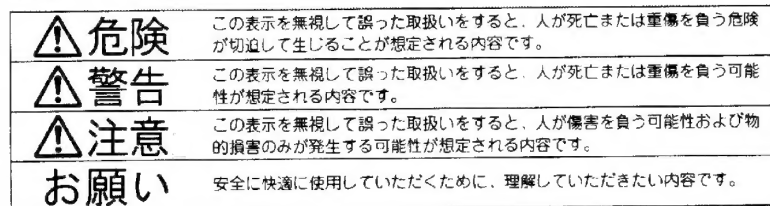 ⚠危険
この表示を無視して誤った取扱いをすると、人が死亡または重傷を負う危険
が切迫して生じることが想定される内容です。
⚠警告
この表示を無視して誤った取扱いをすると、人が死亡または重傷を負う可能
性が想定される内容です。
⚠注意
この表示を無視して誤った取扱いをすると、人が傷害を負う可能性および物
的損害のみが発生する可能性が想定される内容です。
お願い
安全に快適に使用していただくために、理解していただきたい内容です。